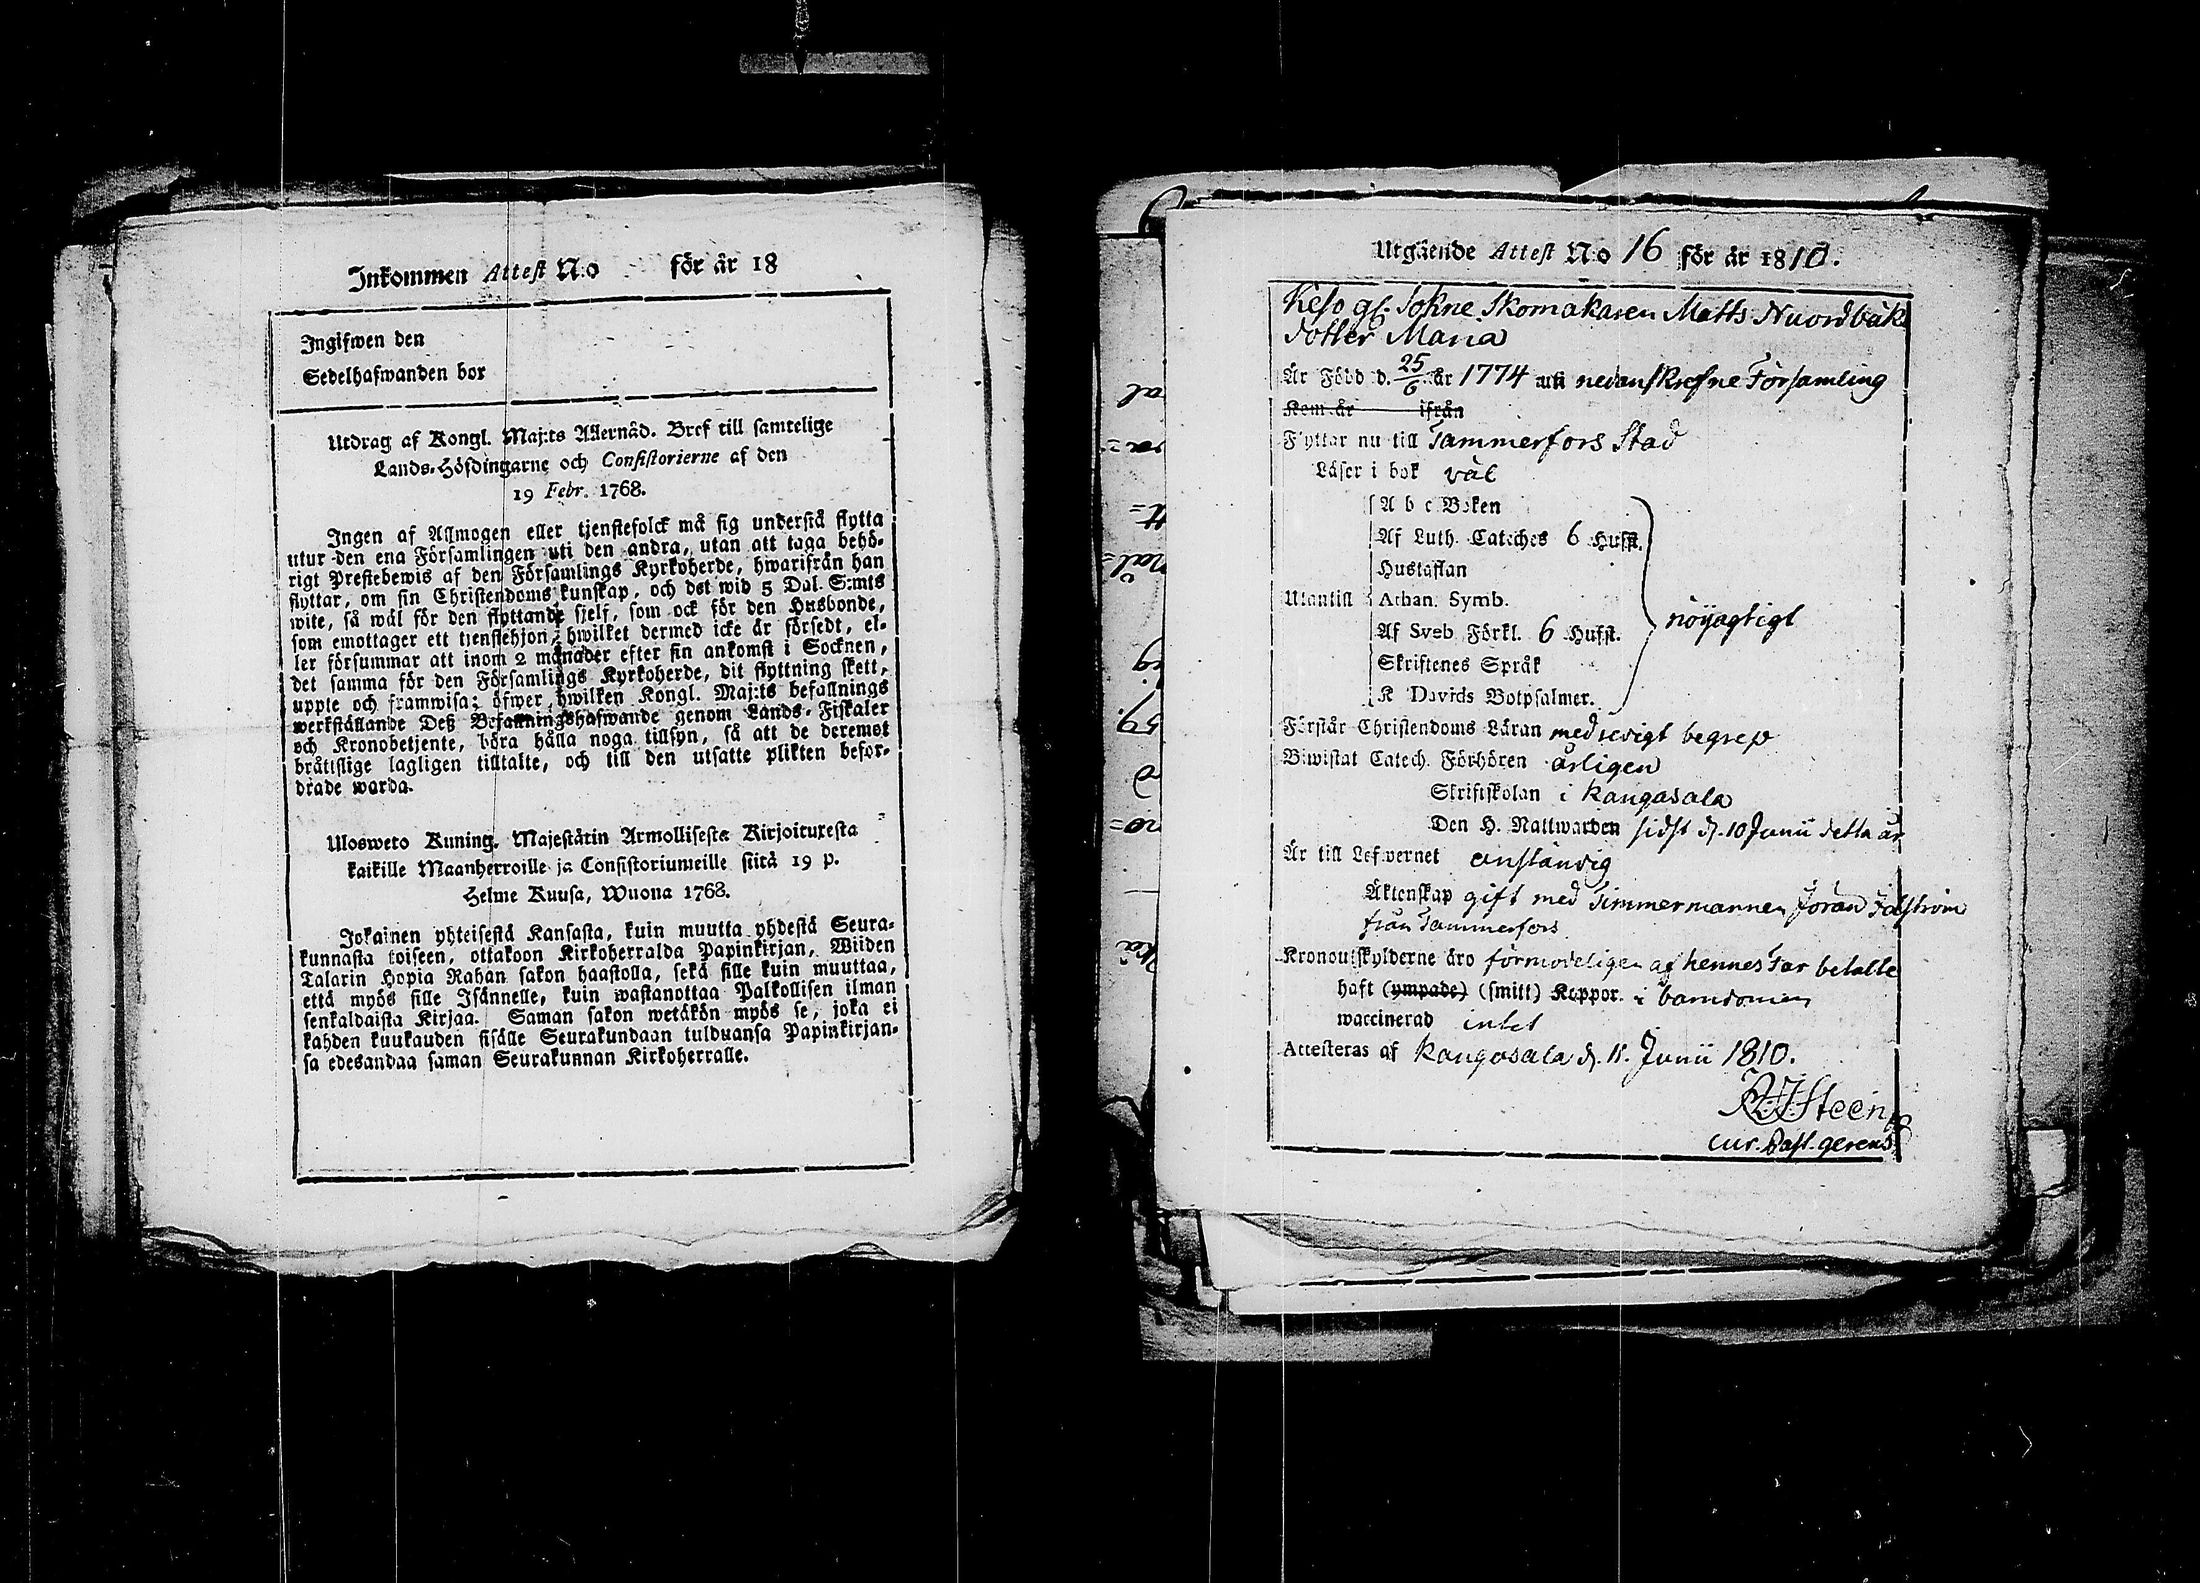 Inkommen Attest N:o för år 18
Ingifwen den
Sedelhafwanden bor
Utdrag af Kongl. Maj:ts Allernåd. Bref till samtelige
Lands-Höfdingarne och Consistorierne af den
19 Febr. 1768.
Ingen af Allmogen eller tjenstefolck må sig understå flytta
utur den ena Församlingen uti den andra, utan att taga behö-
rigt Prestebewis af den Församlings Kyrkoherde, hwarifrån han
flyttar, om sin Christendoms kunskap, och det wid 5 Dal. S:mts
wite, så wäl för den flyttande sjelf, som ock för den Husbonde,
som emottager ett tjenstehjon, hwilket dermed icke är försedt, el-
ler försummar att inom 2 månader efter sin ankomst i Socknen,
det samma för den Församlings Kyrkoherde, dit flyttning skett,
uppte och framwisa; öfwer hwilken Kongl. Maj:ts befallnings
werkställande Deß Befallningshafwande genom Lands-Fiskaler
och Kronobetjente, böra hålla noga tillsyn, så att de deremot
bråttslige lagligen tilltalte, och till den utsatte plikten befor-
drade warda.
Ulosweto Kuning. Majestätin Armollisesta Kirjoituxesta
kaikille Maanherroille ja Consistoriumeille siitä 19 p.
Helme Kuusa, Wuona 1768.
Jokainen yhteisestä Kansasta, kuin muutta yhdestä Seura-
kunnasta toiseen, ottakoon Kirkoherralda Papinkirjan, Wiiden
Talarin Hopia Rahan sakon haastolla, sekä sille kuin muuttaa,
että myös sille Isännelle, kuin wastanottaa Palkollisen ilman
senkaldaista Kirjaa. Saman sakon wetäkön myös se, joka ei
kahden kuukauden sisälle Seurakundaan tulduansa Papinkirjan-
sa edesandaa saman Seurakunnan Kirkoherralle.
Utgående Attest N:o 16 för år 1810.
Keso gl. Sokne Skomakaren Matts Nuordbäk
dotter Maria
Är Född d. 25/6 år 1774 uti nedanskrefne Församling
Kom år ifrån
Flyttar nu till Tammerfors Stad
Läser i bok väl
A b c Boken
Af Luth. Cateches 6 Hufst.
Hustaflan
Utantill Athan. Symb.
Af Sveb. Förkl. 6 Hufst. nöyagtigt
Skriftenes Språk
K Davids Botpsalmer.
Förstår Christendoms Läran medrevigt begrep
Biwistat Catech. Förhören årligen
Skriftskolan i Kangasala
Den H. Nattwarden sidst d. 10 Junii detta år
Är till Lefwernet anständig
Äktenskap gift med Timmermannen Jöran Falström
från Tammerfors
Kronoutskylderne äro förmodeligen af hennes Far betalte
haft (ympade) (smitt) Koppor. i barndomen
waccinerad intet
Attesteras af Kangasala d. 11. Junii 1810.
Steen
cur. Past. gerens